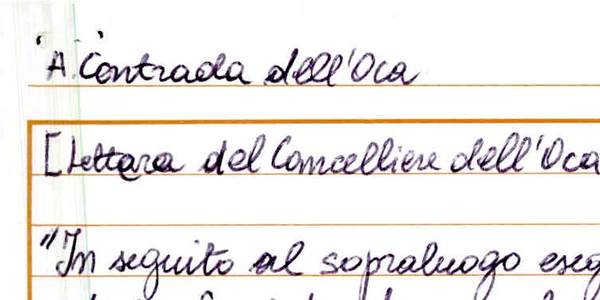 "A" Contrada dell'Oca
[Lettera del Cancelliere dell'Oca
"In seguito al sopraluogo eseg